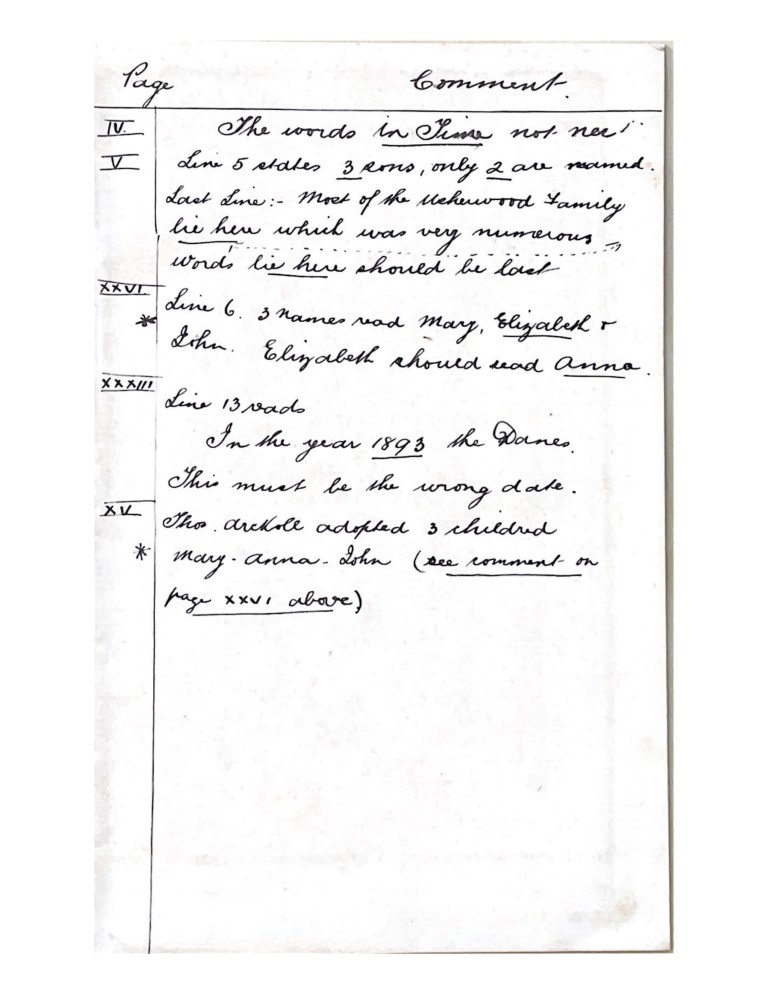 Page Comment.
IV. The words in Time not nec
V Line 5 states 3 sons, only 2 are named.
Last Line:- Most of the Usherwood Family
lie here which was very numerous
words lie here should be last
XXVI
Line 6. 3 names read Mary, Elizabeth &
* John. Elizabeth should read Anna.
XXXIII
Line 13 reads
In the year 1893 the Danes.
This must be the wrong date.
XV
Thos. adopted 3 children
* Mary - Anna - John (see comment on
page XXVI above)